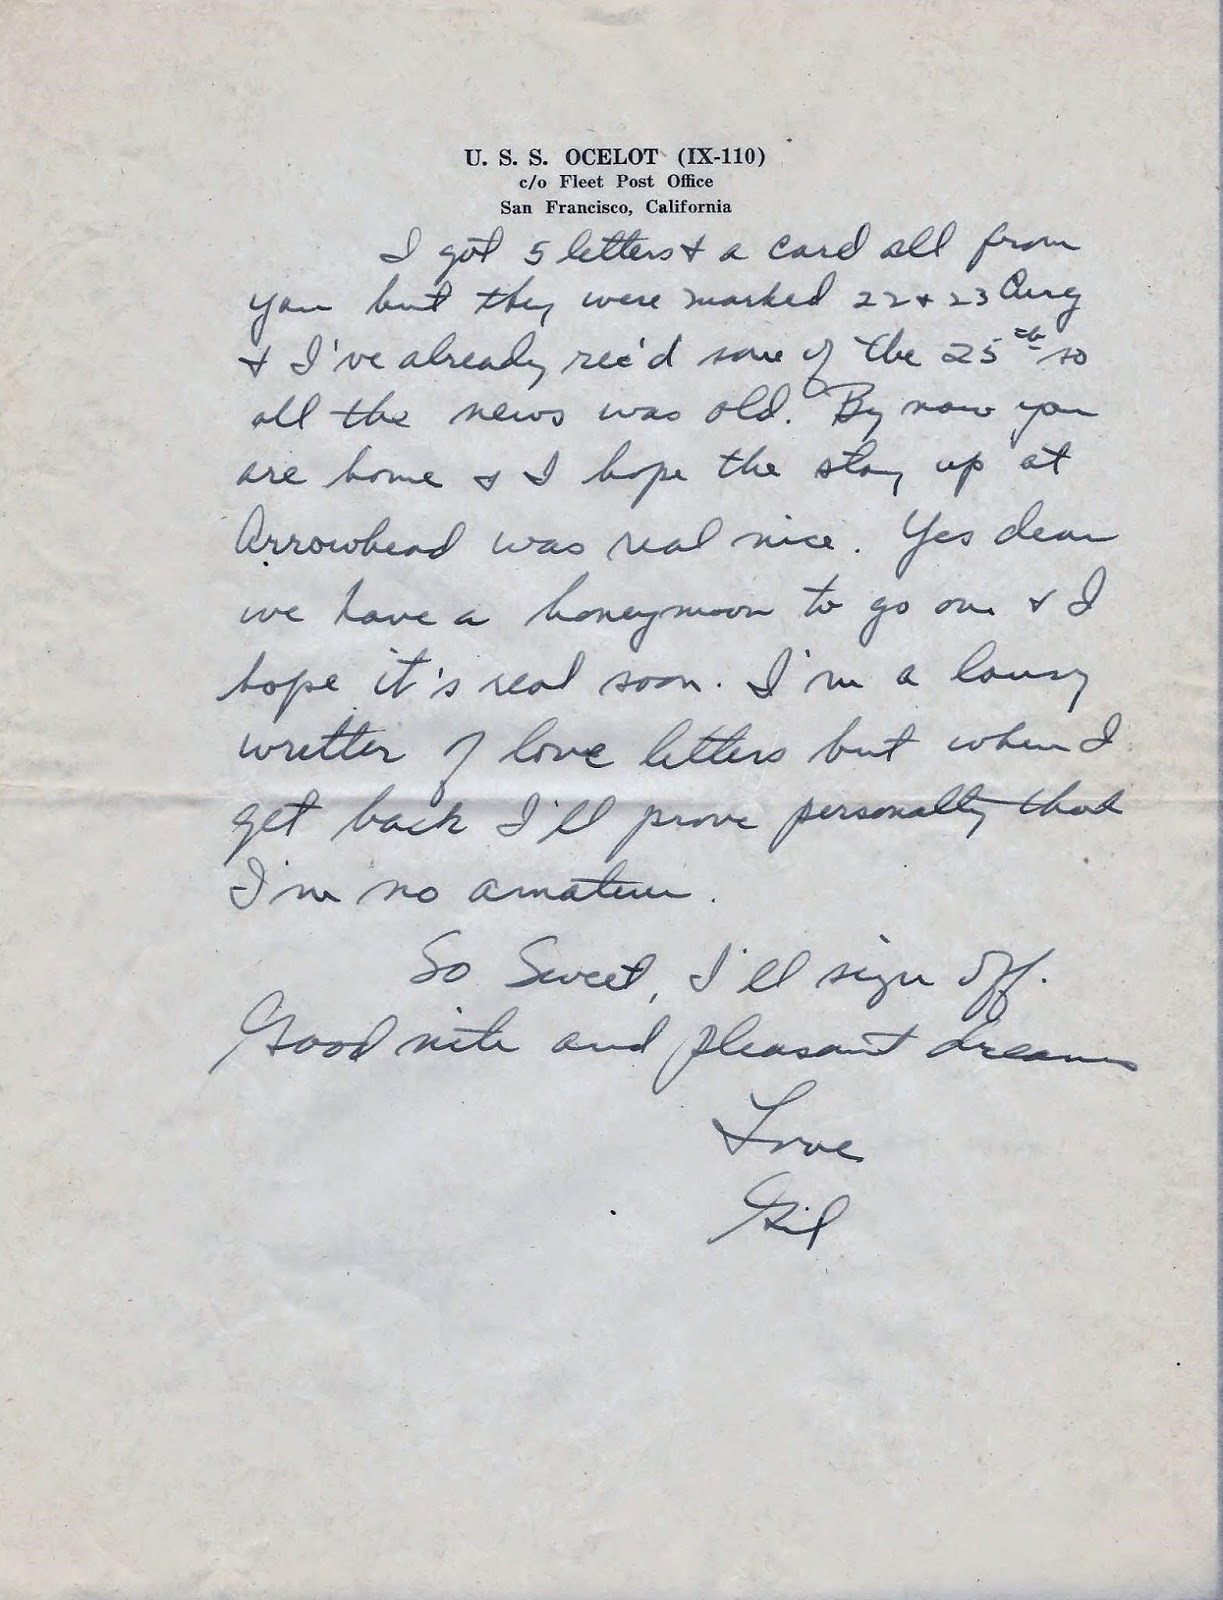 U. S. S. OCELOT (IX-110)
c/o Fleet Post Office
San Francisco, California
I got 5 letters & a card all from
you but they were marked 22 & 23 Aug
& I've already rec'd some of the 25th so
all the news was old. By now you
are home & I hope the stay up at
Arrowhead was real nice. Yes dear
we have a honeymoon to go on & I
hope it's real soon. I'm a lousy
wretter of love letters but when I
get back I'll prove personally that
I'm no amateur.
So Sweet, I'll sign off.
Good nite and pleasant dreams
Love
Gil